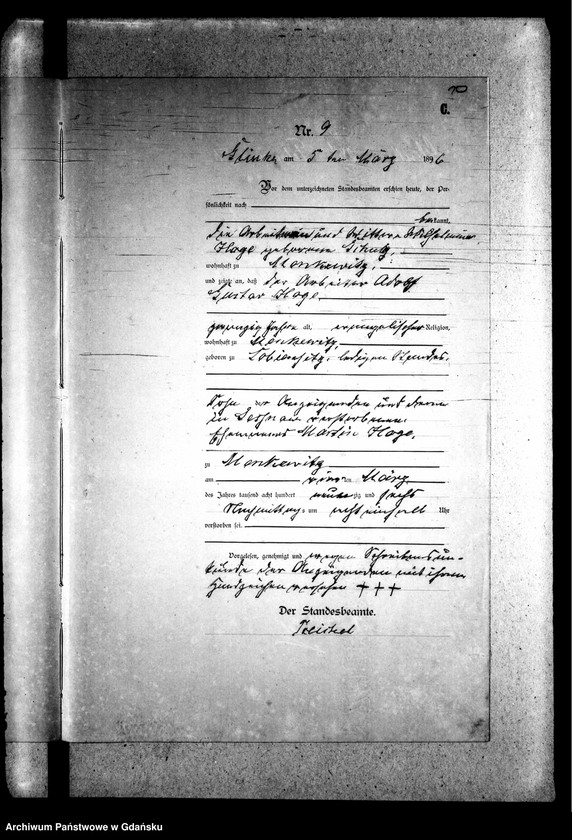 10
C.
Nr. 9
Glinke am 5 ten März 1896
Vor dem unterzeichneten Standesbeamten erschien heute, der Per-
sönlichkeit nach
bekannt,
die und Wittwe Wilhelmine
Hoge geborene Schulz,
wohnhaft zu Monkewitz,
und zeigte an, daß der Arbeiter Adolf
Gustav Hoge,
zwanzig Jahre alt, evangelischer Religion,
wohnhaft zu Monkewitz,
geboren zu ledigen Standes,
Sohn der Anzeigenden und deren
in verstorbenen
Ehemannes Martin Hoge,
zu Monkewitz
am vierten März
des Jahres tausend acht hundert neunzig und sechs
Nachmittags um acht einhalb Uhr
verstorben sei.
Vorgelesen, genehmigt und wegen Schreibensun-
kunde der Anzeigenden mit ihrem
Handzeichen versehen +++
Der Standesbeamte.
Archiwum Państwowe w Gdańsku